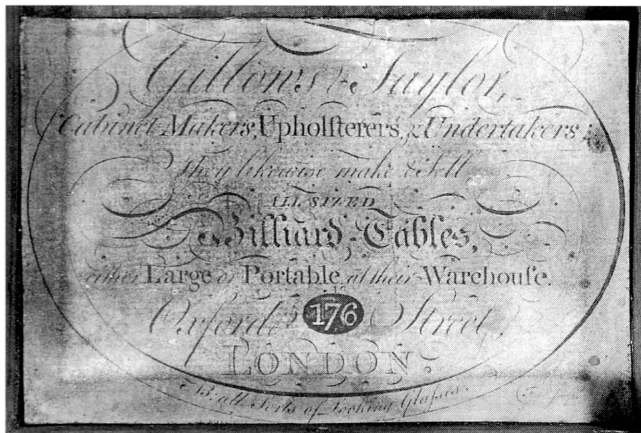 Gillows & Taylor,
Cabinet Makers, Upholſterers, & Undertakers;
They likewise make & Sell
ALL SIZED
Billiard-Tables,
either Large or Portable, at their Warehouſe.
Oxford 176 Street
LONDON.
N.B. all Sorts of Looking Glaſses.